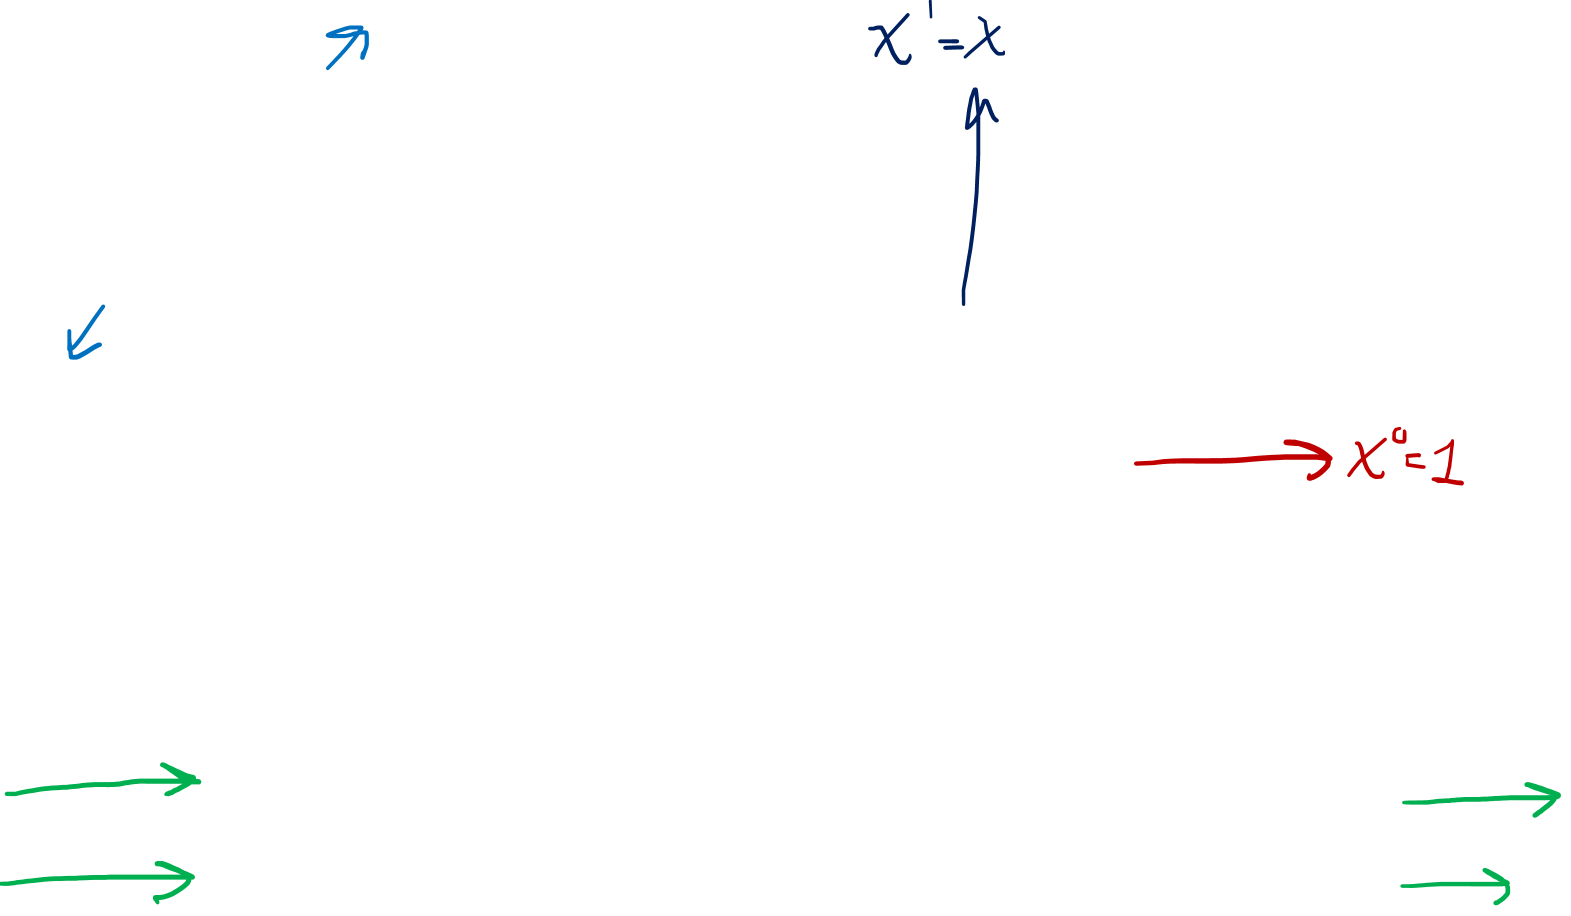 x¹=x
x⁰=1